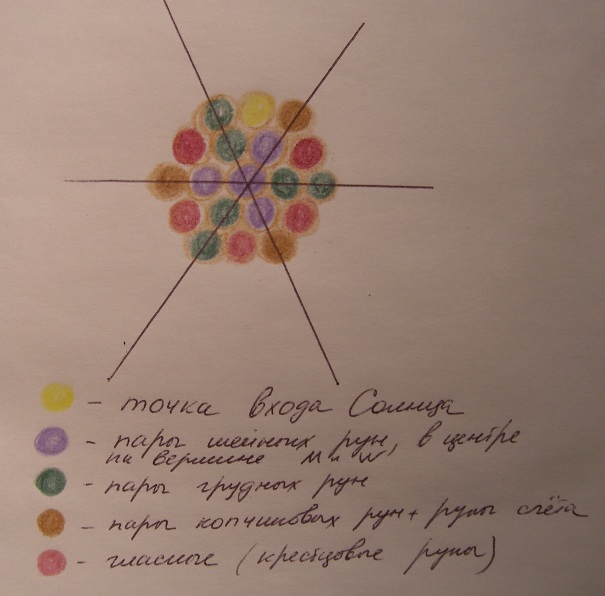 - точка входа Солнца
- пары шейных рун, в центре
на вершине м и w
- пары грудных рун
- пары копчиковых рун + руны счёта
- гласные (крестцовые руны)